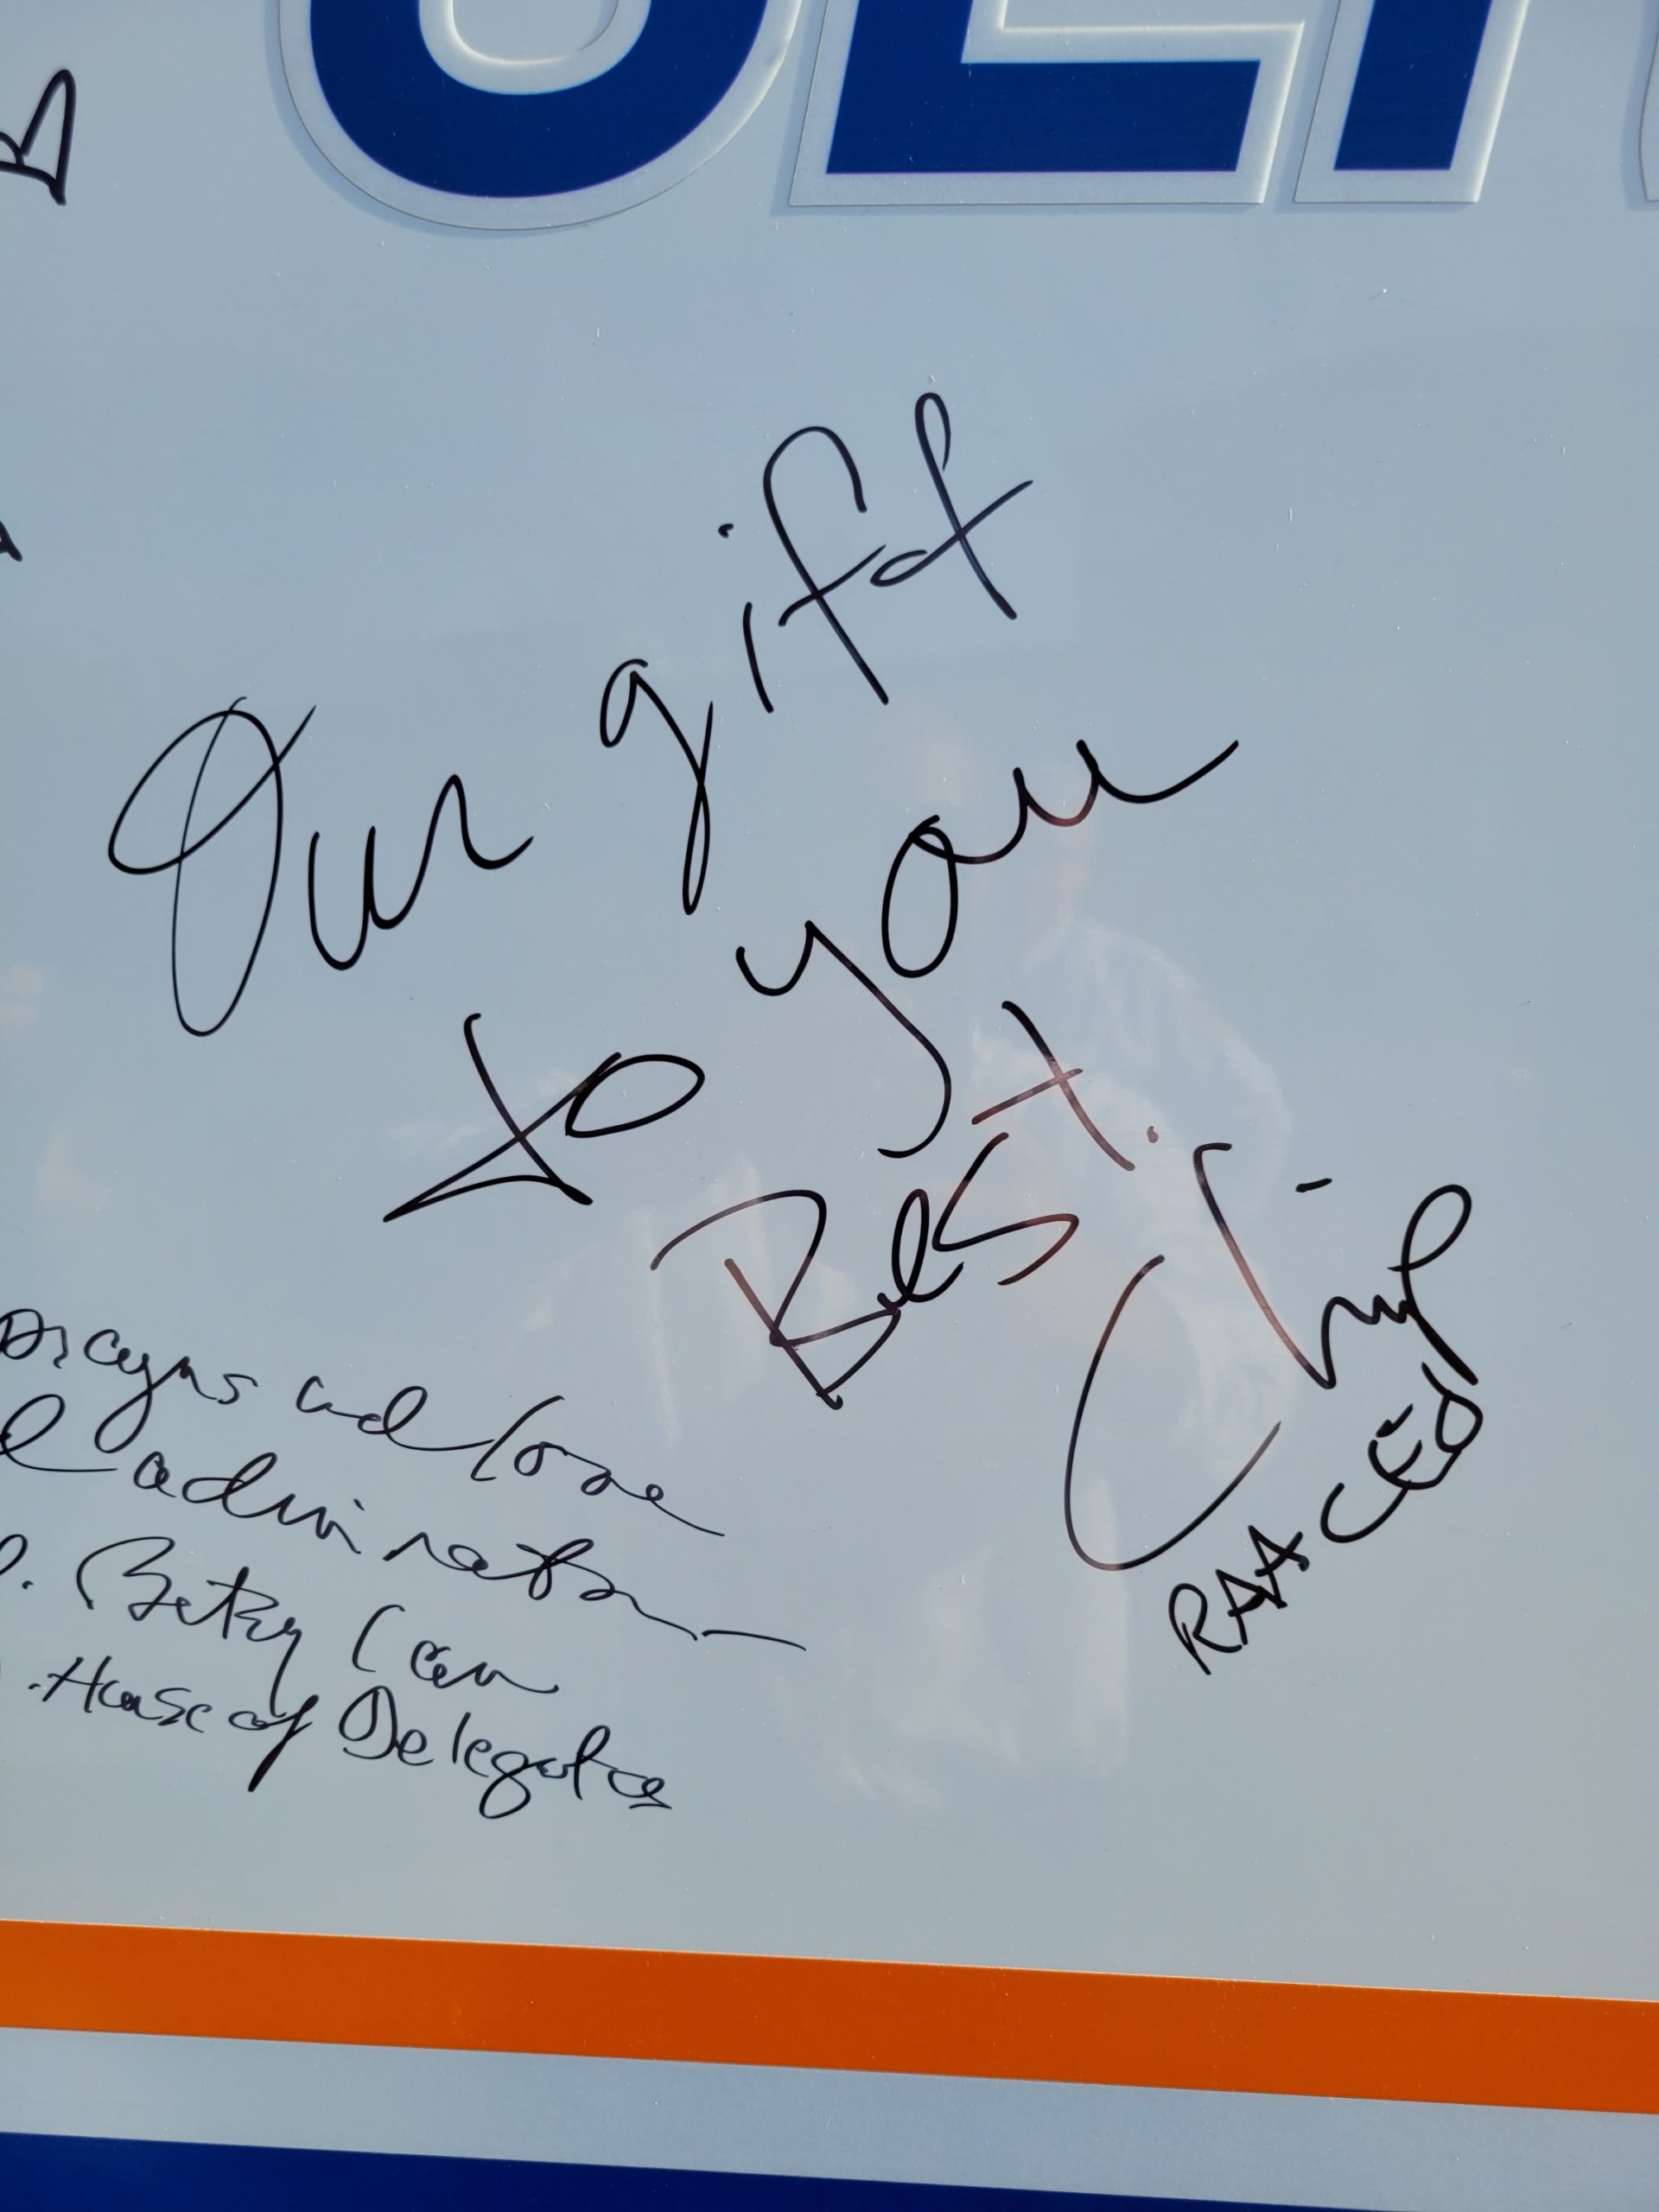 Our gift
to you
Best.
Chip
RAA CEO
and love
admiration
Betsy Carr
House of Delegates